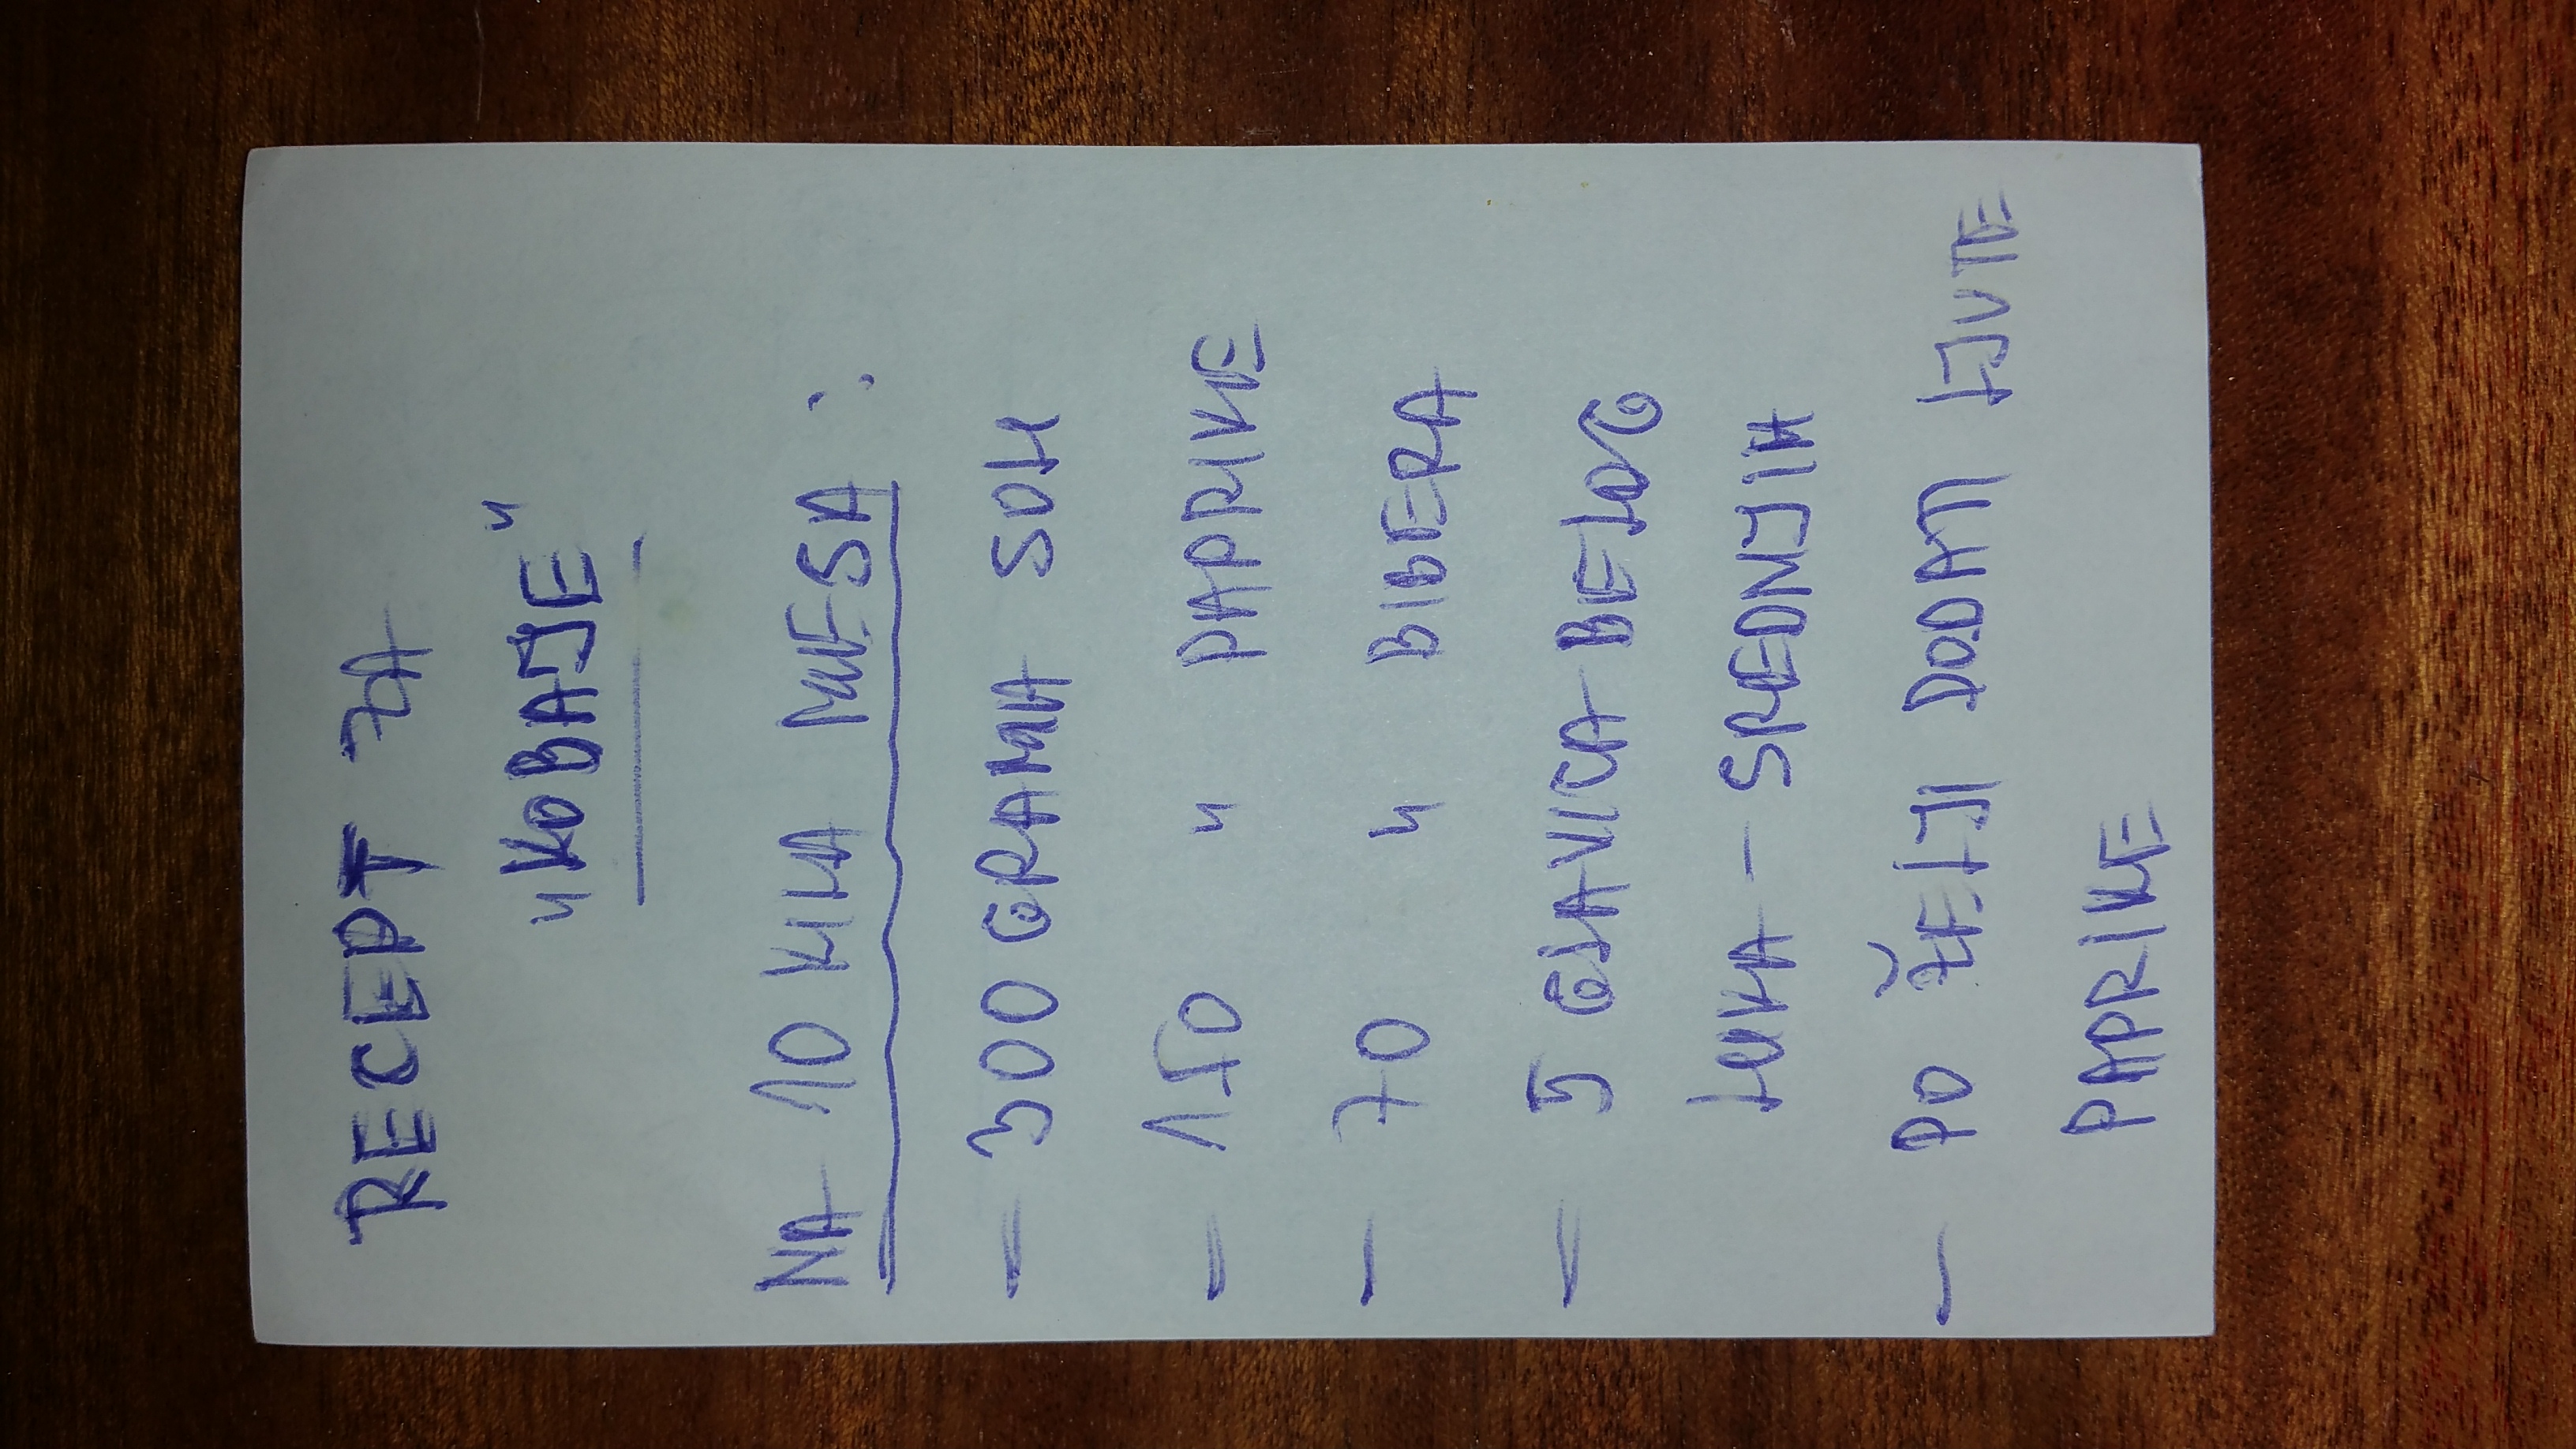 RECEPT ZA
"KOBAJE"
NA 10 KILA MESA :
- 300 GRAMA SOLI
- 150 " PAPRIKE
- 70 " BIBERA
- 5 GLAVICA BELOG
LUKA - SREDNJIH
- PO ŽELJI DODATI LJUTE
PAPRIKE